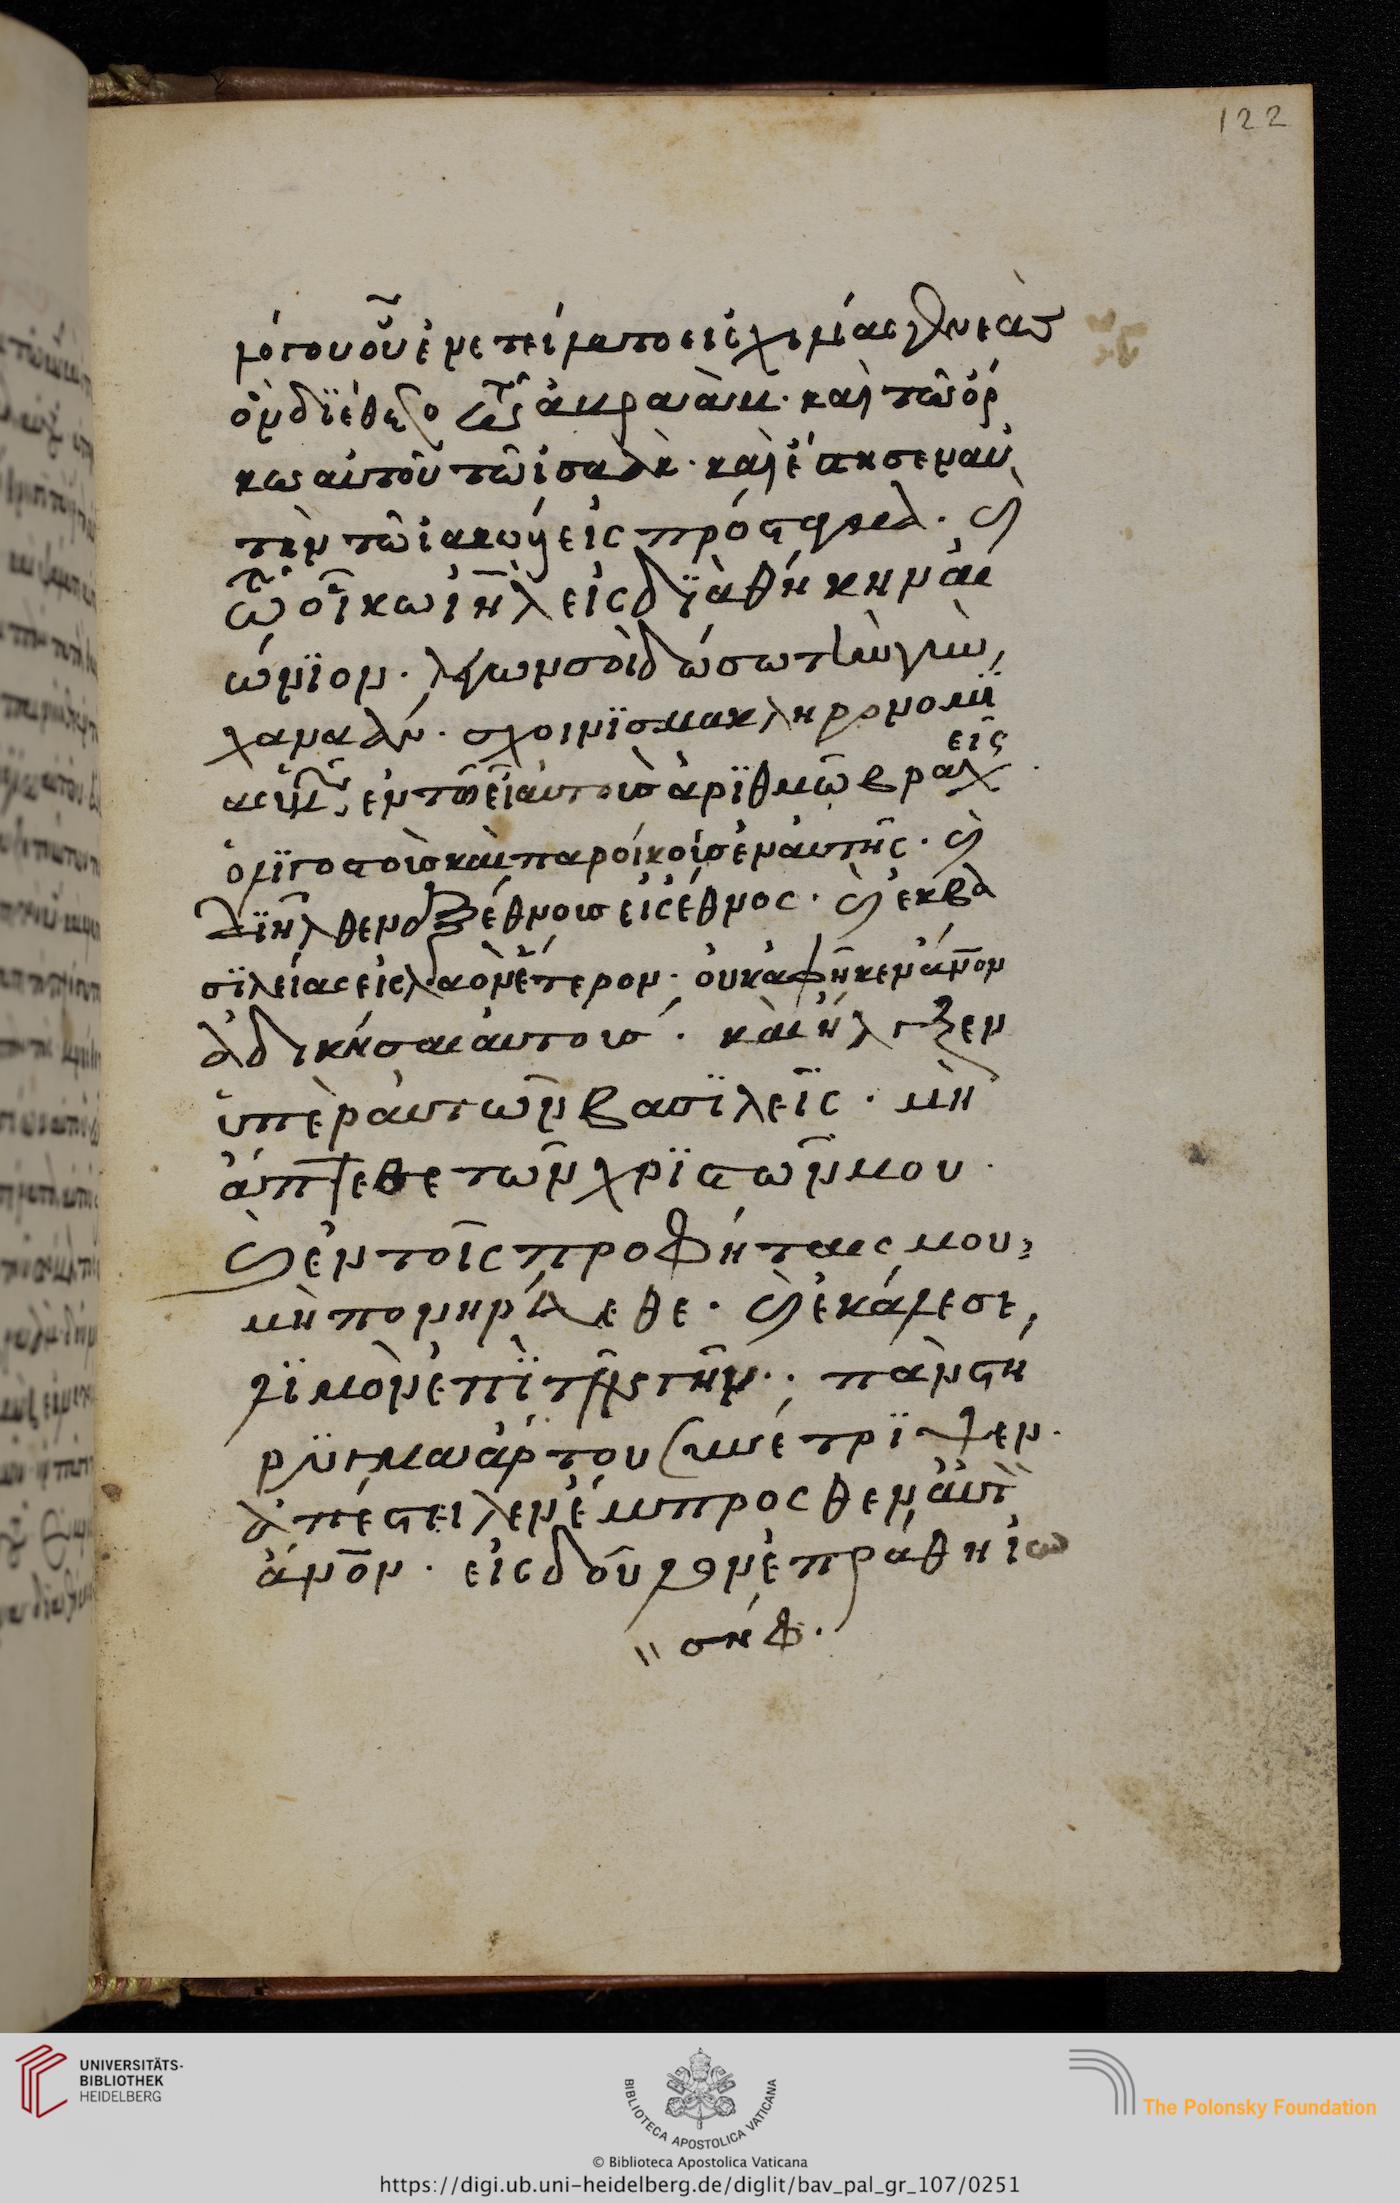 122
λόγου οὗ ἐνετείλατο εἰς χιλίας γενεάς
ὃν διέθετο τῷ ἀβραάμ· καὶ τοῦ ὅρ
κου αὐτοῦ τῷ ἰσαάκ· καὶ ἔστησεν αὐ
τὴν τῷ ἰακὼβ εἰς πρόσταγμα· καὶ
τῷ οἴκω ἰηλ εἰς διαθήκην αἰ
ώνιον· λέγων σοὶ δώσω τὴν γῆν
χαναάν· σχοίνισμα κληρονομί
ας ὑμῶν ἐν τῷ εἶναι αὐτοὺς ἀριθμῷ βραχεῖς·
ὀλιγοστοὺς καὶ παροίκους ἐν αὐτῆς· καὶ
διῆλθεν ἐξ ἔθνους εἰς ἔθνος· καὶ ἐκ βα
σιλείας εἰς λαὸν ἕτερον· οὐκ ἀφῆκεν ἄνον
ἀδικῆσαι αὐτούς· καὶ ἤλεγξεν
ὑπὲρ αὐτῶν βασιλεῖς· μὴ
ἅπτεσθε τῶν χριστῶν μου·
καὶ ἐν τοῖς προφήταις μου,
μὴ πονηρεύεσθε· καὶ ἐκάλεσε
λιμὸν ἐπὶ τὴν γῆν· πᾶν στή
ριγμα ἄρτου συνέτριψεν·
ἀπέστειλεν ἔμπροσθεν αὐτῶν
ἄνον· εἰς δοῦλον ἐπράθη ἰω
σήφ·
UNIVERSITÄTS-
BIBLIOTHEK
HEIDELBERG
BIBLIOTECA APOSTOLICA VATICANA
The Polonsky Foundation
© Biblioteca Apostolica Vaticana
https://digi.ub.uni-heidelberg.de/diglit/bav_pal_gr_107/0251